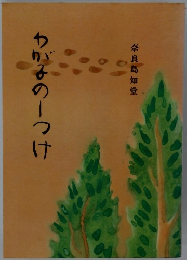 わが子のしつけ
奈良島知堂